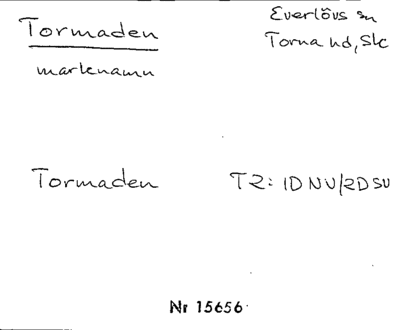 Tormaden
Everlövs sn
Torna hd, Skc
marknamn
Tormaden
T2: 1D NV/2D SV
Nr 15656